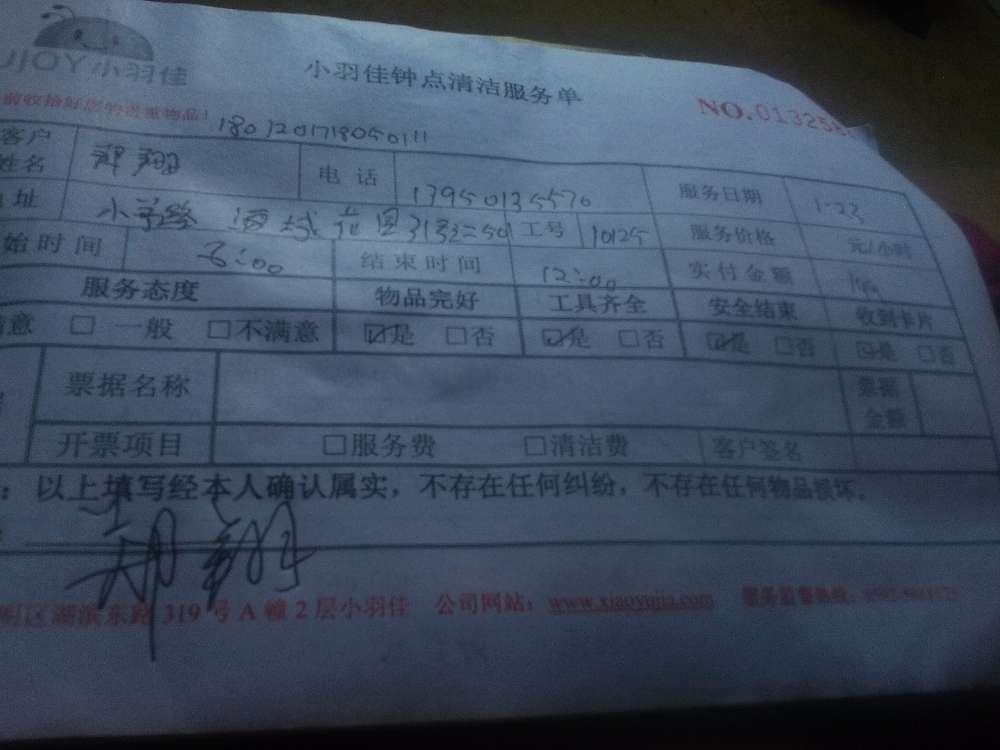 UJOY小羽佳
小羽佳钟点清洁服务单
NO.013258
前收拾好您的贵重物品!
180120171805011
客户姓名 翔 电话 17950135570 服务日期 1-23
址 小学路 海城花园 工号 10125 服务价格 元/小时
始时间 :00 结束时间 12:00 实付金额
服务态度 物品完好 工具齐全 安全结束 收到卡片
意 □ 一般 □不满意 ☑是 □否 ☑是 □否 ☑是 □否 ☑是 □否
票据名称 票据金额
开票项目 □服务费 □清洁费 客户签名
:以上填写经本人确认属实,不存在任何纠纷,不存在任何物品损坏。
翔
明区湖滨东路 319 号 A 幢 2 层小羽佳 公司网站:www.xiaoyujia.com 服务监督热线: